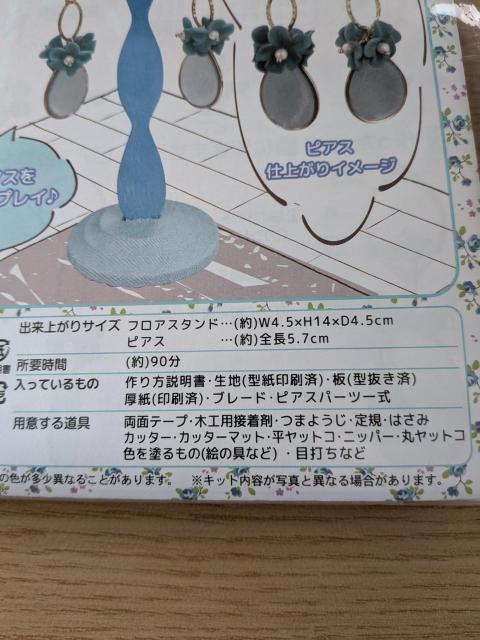 ピアス
仕上がりイメージ
スを
プレイ♪
出来上がりサイズ フロアスタンド…(約)W4.5×H14×D4.5cm
ピアス …(約)全長5.7cm
所要時間 (約)90分
入っているもの 作り方説明書・生地(型紙印刷済)・板(型抜き済)
厚紙(印刷済)・ブレード・ピアスパーツ一式
用意する道具 両面テープ・木工用接着剤・つまようじ・定規・はさみ
カッター・カッターマット・平ヤットコ・ニッパー・丸ヤットコ
色を塗るもの(絵の具など)・目打ちなど
の色が多少異なることがあります。 ※キット内容が写真と異なる場合があります。